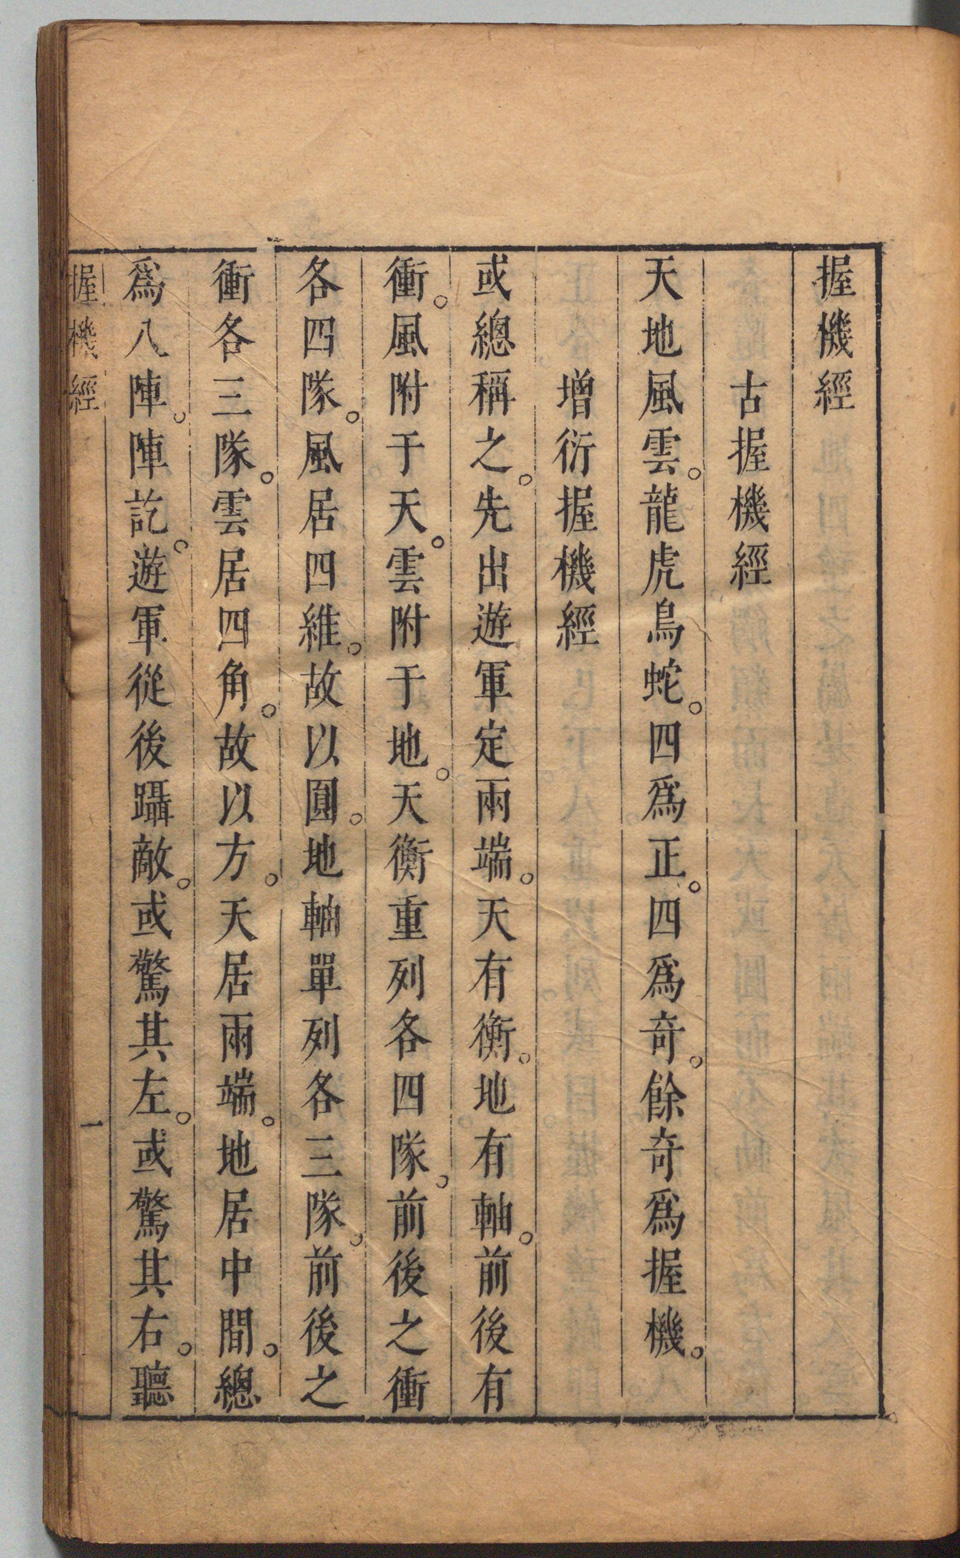 握機經
古握機經
天地風雲。龍虎鳥蛇。四爲正。四爲奇。餘奇爲握機。
增衍握機經
或總稱之。先出遊軍定兩端。天有衡。地有軸。前後有
衝。風附于天。雲附于地。天衡重列各四隊。前後之衝
各四隊。風居四維。故以圓。地軸單列各三隊。前後之
衝各三隊。雲居四角。故以方。天居兩端。地居中間。總
爲八陣。陣訖。遊軍從後躡敵。或驚其左。或驚其右。聽
握機經
一